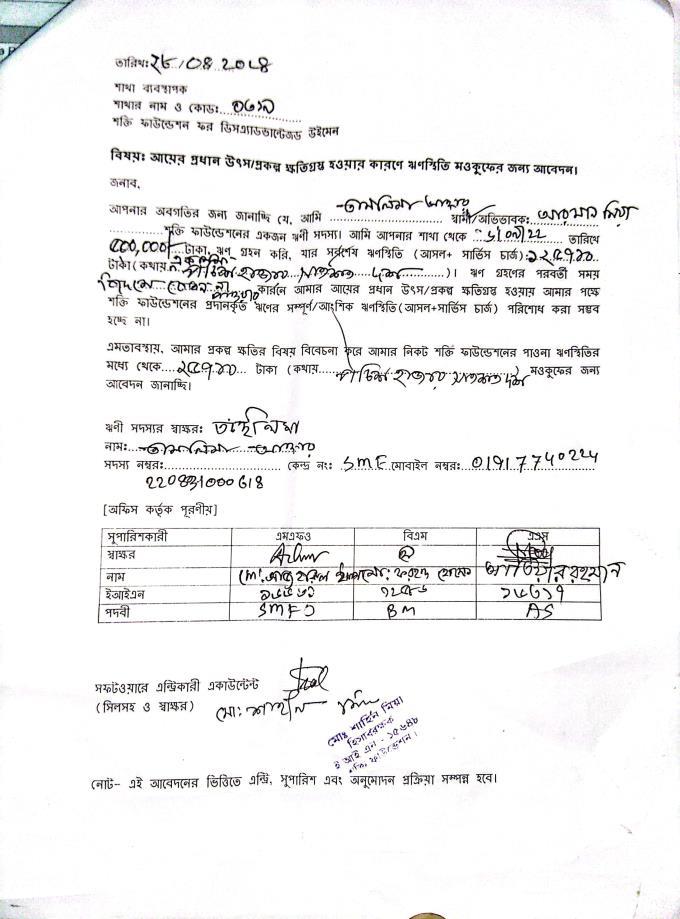 তারিখঃ২৮/০৪.২০২৪
শাখা ব্যবস্থাপক
শাখার নাম ও কোডঃ
শক্তি ফাউন্ডেশন ফর ডিসএ্যাডভান্টেজড উইমেন
বিষয়ঃ আয়ের প্রধান উৎস/প্রকল্প ক্ষতিগ্রস্থ হওয়ার কারণে ঋণস্থিতি মওকুফের জন্য আবেদন।
জনাব,
আপনার অবগতির জন্য জানাচ্ছি যে, আমি তাসলিমা আক্তার স্বামী/অভিভাবক: আরমান মিয়া
শক্তি ফাউন্ডেশনের একজন ঋণী সদস্য। আমি আপনার শাখা থেকে তারিখে
৫০০,০০০/ টাকা, ঋণ গ্রহন করি, যার সর্বশেষ ঋণস্থিতি (আসল+ সার্ভিস চার্জ)
টাকা (কথায় পঁচিশ হাজার সাতশত দশ)। ঋণ গ্রহণের পরবর্তী সময়
কারনে আমার আয়ের প্রধান উৎস/প্রকল্প ক্ষতিগ্রস্থ হওয়ায় আমার পক্ষে
শক্তি ফাউন্ডেশনের প্রদানকৃত ঋণের সম্পূর্ণ/আংশিক ঋণস্থিতি (আসল+সার্ভিস চার্জ) পরিশোধ করা সম্ভব
হচ্ছে না।
এমতাবস্থায়, আমার প্রকল্প ক্ষতির বিষয় বিবেচনা করে আমার নিকট শক্তি ফাউন্ডেশনের পাওনা ঋণস্থিতির
মধ্যে থেকে ২৫৭১০ টাকা (কথায় পঁচিশ হাজার সাতশত দশ মওকুফের জন্য
আবেদন জানাচ্ছি।
ঋণী সদস্যর স্বাক্ষর:
নাম: তাসলিমা আক্তার
সদস্য নম্বর: কেন্দ্র নং: SME মোবাইল নম্বর: 01917740224
220831000618
[অফিস কর্তৃক পূরণীয়]
সুপারিশকারী এমএফও বিএম এএস
স্বাক্ষর
নাম
ইআইএন ১২৫৮ ১৫৩১৭
পদবী SMFO BM AS
সফটওয়ারে এন্ট্রিকারী একাউন্টেন্ট
(সিলসহ ও স্বাক্ষর) মো: শাহীন মিয়া
মোঃ শাহিন মিয়া
হিসাবরক্ষক
ই আই এন - ১৫৬৪৮
শক্তি ফাউন্ডেশন।
নোট- এই আবেদনের ভিত্তিতে এন্ট্রি, সুপারিশ এবং অনুমোদন প্রক্রিয়া সম্পন্ন হবে।